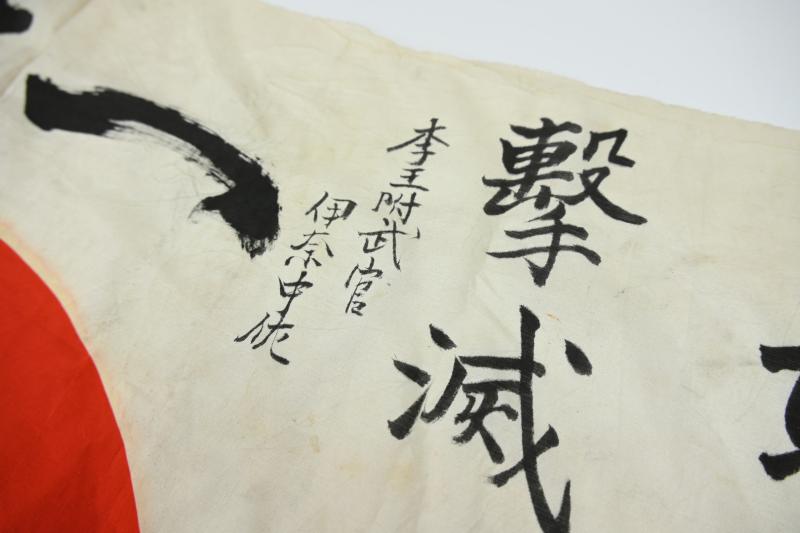 擊滅
李王附武官
伊奈中佐